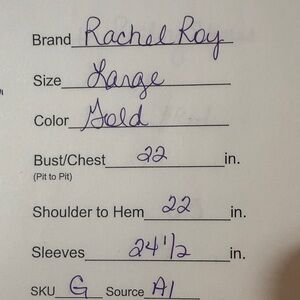 Brand Rachel Roy
Size Large
Color Gold
Bust/Chest 22 in.
(Pit to Pit)
Shoulder to Hem 22 in.
Sleeves 24 1/2 in.
SKU G Source A1